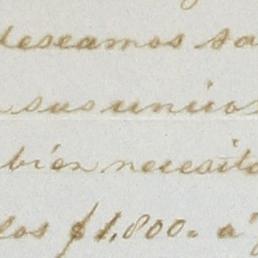 deseamos sa
sus unicos
bien necesita
los $1,800. a